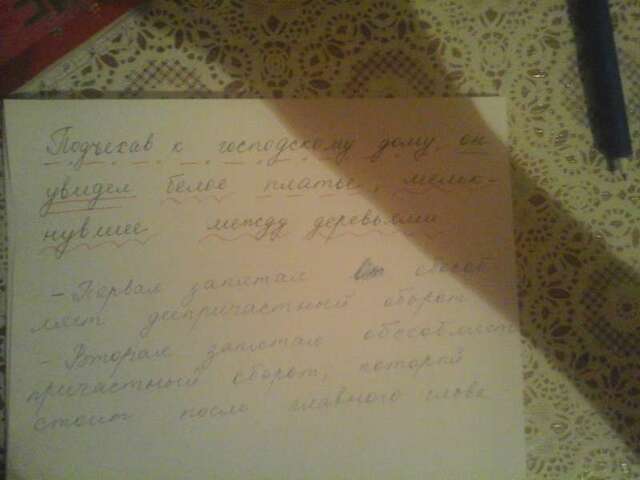 Подъехав к господскому дому, он
увидел белое платье, мельк-
нувшее между деревьями
- Первая запятая обособ
ляет деепричастный оборот
- Вторая запятая обособляет
причастный оборот, который
стоит после главного слова